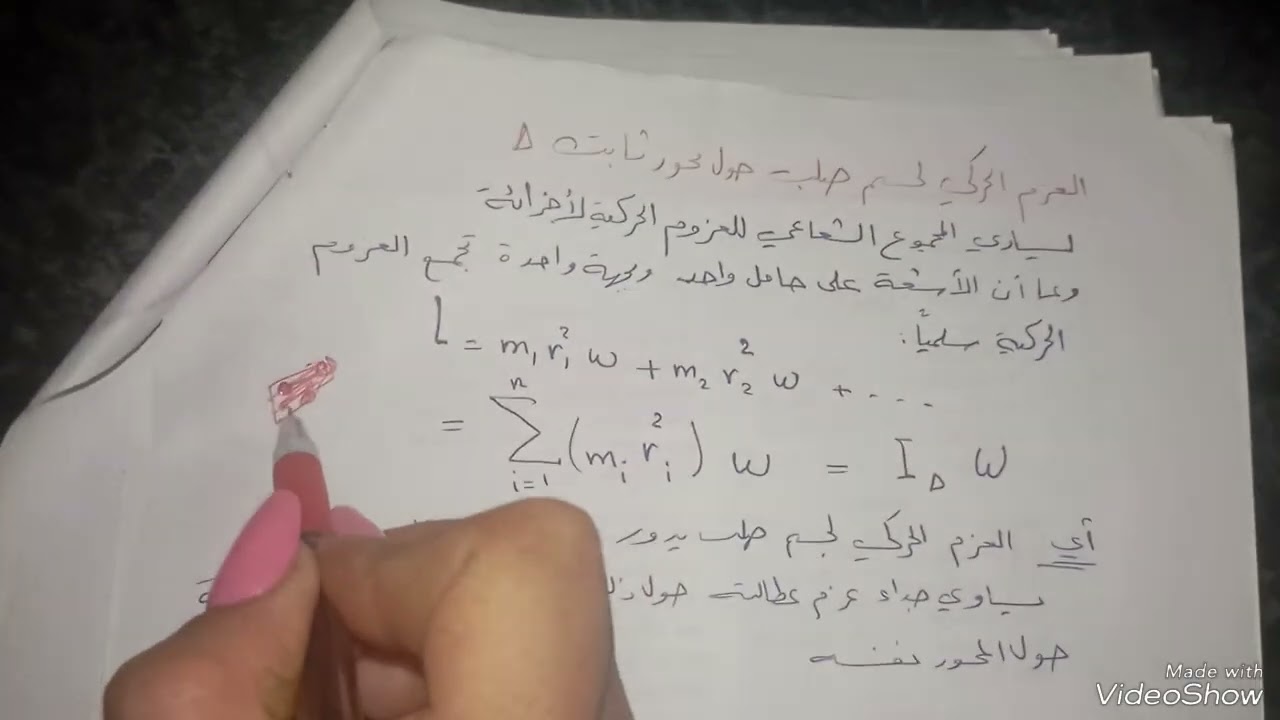 العزم الحركي لجسم صلب حول محور ثابت Δ
يساوي المجموع الشعاعي للعزوم الحركية لأجزائه
وبما أن الأشعة على حامل واحد وبجهة واحدة تجمع العزوم
الحركية سلمياً:
L = m₁ r₁² ω + m₂ r₂² ω + ...
= Σⁿᵢ₌₁ (mᵢ rᵢ²) ω = I_Δ ω
أي العزم الحركي لجسم صلب يدور
يساوي جداء عزم عطالته حول
حول المحور نفسه
Made with
VideoShow